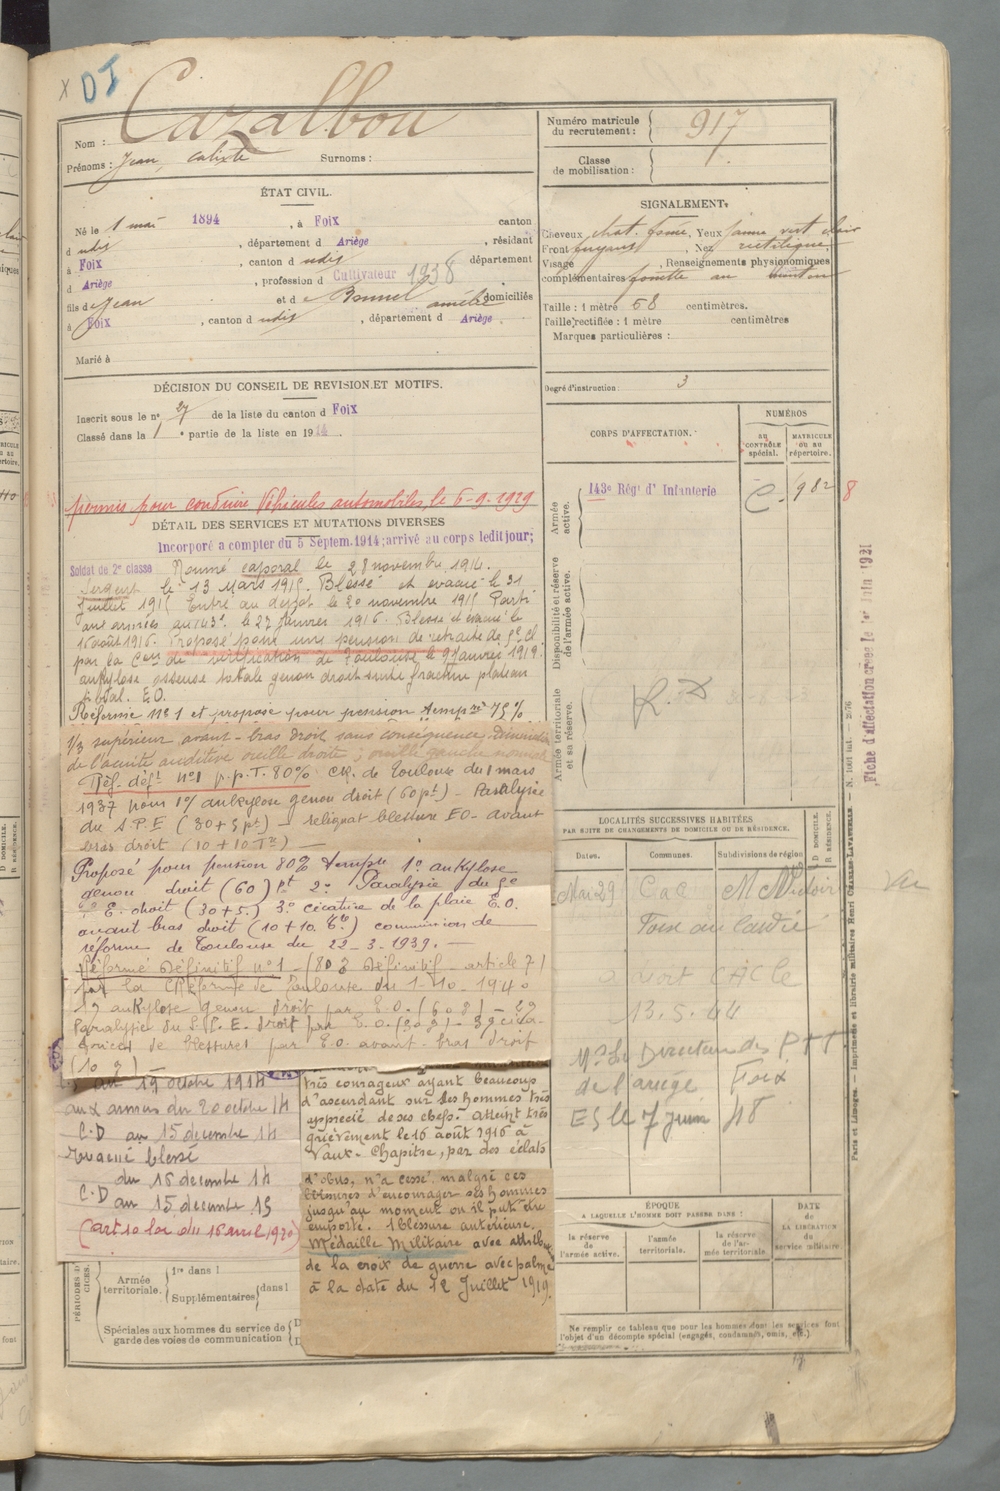 X DI
Nom : Cazalbou
Prénoms : Jean, calixte Surnoms :
Numéro matricule du recrutement : 917
Classe de mobilisation :
ÉTAT CIVIL.
Né le 1 mai 1894, à Foix canton
d udit, département d Ariège, résidant
à Foix, canton d udit département
d Ariège, profession d Cultivateur 1938
fils de Jean et d e Bonnel amélie domiciliés
à Foix, canton d udit, département d Ariège
Marié à
SIGNALEMENT.
Cheveux chat. foncé, Yeux jaune vert clair
Front fuyant, Nez rectiligne,
Visage , Renseignements physionomiques
complémentaires fossette au menton
Taille : 1 mètre 58 centimètres.
Taille rectifiée : 1 mètre centimètres
Marques particulières :
Degré d'instruction : 3
DÉCISION DU CONSEIL DE REVISION ET MOTIFS.
Inscrit sous le n° 27 de la liste du canton d Foix
Classé dans la 1 e partie de la liste en 1914.
permis pour conduire Véhicules automobiles, le 6-9-1929
DÉTAIL DES SERVICES ET MUTATIONS DIVERSES
Incorporé a compter du 5 Septem. 1914; arrivé au corps ledit jour;
Soldat de 2e classe Nommé caporal le 28 novembre 1914.
Sergent le 13 Mars 1915. Blessé et evacué le 31
Juillet 1915 Entré au dépôt le 20 novembre 1915 Parti
aux armées au 143e le 27 Janvier 1916. Blessé et évacué le
16 août 1916. Proposé pour une pension de retraite de 5e cl
par la Con de vérification de Toulouse le 9 Janvier 1919.
ankylose osseuse totale genou droit suite fracture plateau
tibial. E.O.
Réformé N°1 et proposé pour pension tempre 75%
1/3 supérieur avant-bras droit sans conséquence, Diminution
de l'acuité auditive oreille droite; oreille gauche normale
Réf. déft n°1 p.p.T. 80% C.R. de Toulouse du 1 mars
1937 pour 1°/ ankylose genou droit (60 pt) - Paralysie
du S.P.E (30+5 pt) - reliquat blessure E.O. avant
bras droit (10+10 Tre) —
Proposé pour pension 80% tempre 1° ankylose
genou droit (60) pt 2° Paralysie du S.
P. E. droit (30+5.) 3° cicatrice de la plaie E.O.
avant bras droit (10+10. tre) commission de
réforme de Toulouse du 22-3-1939. —
Réformé Définitif n°1 - (80 % Définitif - article 7)
par la C Réforme de Toulouse du 1-10-1940
1°) ankylose genou droit par E.O. (60%) - 2°)
Paralysie du S.P.E. droit par E.O. (30%) - 3°) cica-
trices de blessures par E.O. avant-bras droit
(10 %)
au 19 octobre 1914
aux armées du 20 octobre 14
C.D au 15 decembre 14
évacué blessé
du 16 decembre 14
C.D au 15 decembre 15
(art 10 loi du 16 avril 1920)
très courageux ayant beaucoup
d'ascendant sur ses hommes très
apprecié de ses chefs. atteint très
grièvement le 16 août 1916 à
Vaux-Chapitre, par des éclats
d'obus, n'a cessé malgré ces
blessures d'encourager ses hommes
jusqu'au moment où il put être
emporté. 1 blessure antérieure.
Médaille Militaire avec attribut
de la croix de guerre avec palme
à la date du 12 Juillet 1919.
PÉRIODES D CICES.
Armée territoriale.
1re dans l
Supplémentaires dans l
Spéciales aux hommes du service de garde des voies de communication
CORPS D'AFFECTATION.
NUMÉROS
au CONTRÔLE spécial.
MATRICULE ou au répertoire.
Armée active.
143e Régt d' Infanterie
C. 982 8
Disponibilité et réserve de l'armée active.
Armée territoriale et sa réserve.
LOCALITÉS SUCCESSIVES HABITÉES
PAR SUITE DE CHANGEMENTS DE DOMICILE OU DE RÉSIDENCE.
Dates. Communes. Subdivisions de région
D DOMICILE. R RÉSIDENCE.
Mai 29
13.5.44
Mr Le Directeur des PTT
de l'ariège Foix
ES le 7 juin 48
Vu
ÉPOQUE
A LAQUELLE L'HOMME DOIT PASSER DANS :
la réserve de l'armée active.
l'armée territoriale.
la réserve de l'armée territoriale.
DATE de LA LIBÉRATION du service militaire.
Ne remplir ce tableau que pour les hommes dont les services font
l'objet d'un décompte spécial (engagés, condamnés, omis, etc.)
Fiche d'affectation créée le 1er Juin 1931
Paris et Limoges. — Imprimerie et librairie militaires Henri CHARLES-LAVAUZELLE. — N. 1001 int. — 2/76